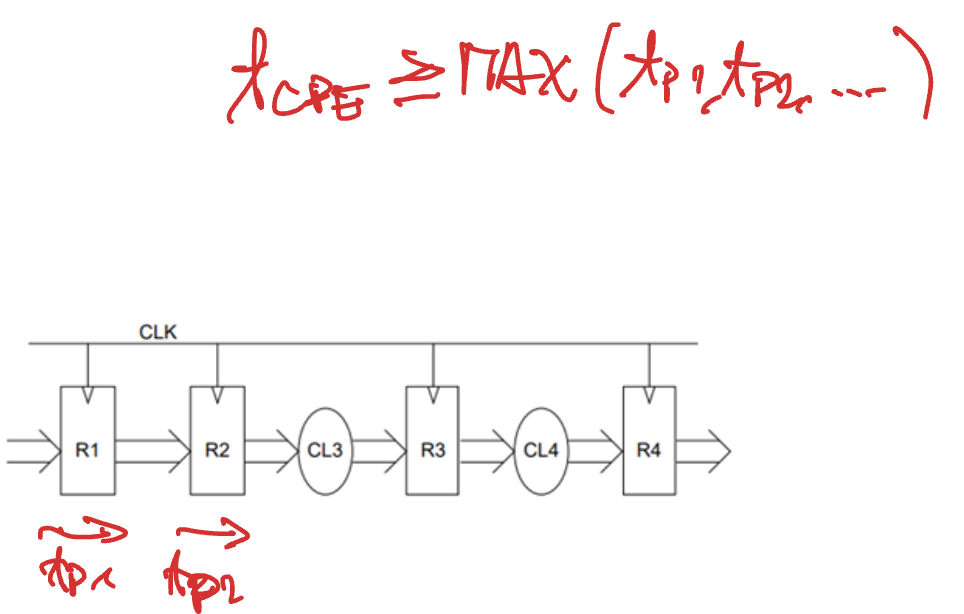 tCPE ≥ MAX (tp1, tp2, ... )
CLK
R1 R2 CL3 R3 CL4 R4
tp1 tp2